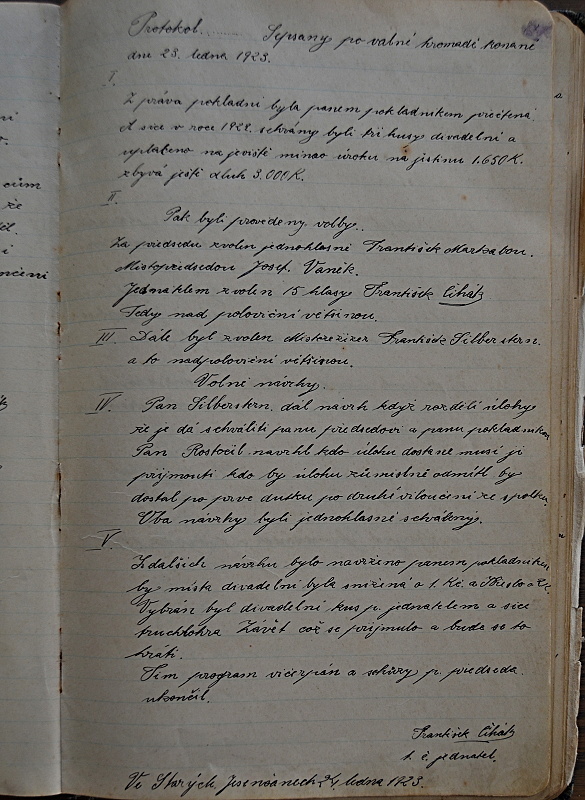 Protokol. Sepsaný po valné hromadě konané
dne 23. ledna 1923.
I.
Zpráva pokladní byla panem pokladníkem přečtená.
A sice v roce 1922. sehrány byli tři kusy divadelní a
uplaceno na jeviště mimo úroku na jistinu 1.650 K.
zbývá ještě dluh 3.000 K.
II.
Pak byli provedeny volby.
Za předsedu zvolen jednohlasně František
Místopředsedou Josef Vaněk.
Jednatelem zvolen 15 hlasy František Cihák
Tedy nad poloviční většinou.
III. Dále byl zvolen Místorežizer František Silberstern.
a to nadpoloviční většinou.
Volné návrhy.
IV. Pan Silberstern dál návrh když rozdělí úlohy
že je dá schváliti panu předsedovi a panu pokladníkovi
Pan Rostočil navrhl kdo úlohu dostane musí ji
přijmouti kdo by úlohu zůmislně odmítl by
dostal po prve důtku po druhé viloučení ze spolku.
Oba návrhy byli jednohlasně schváleny.
V.
Z dalších návrhu bylo navrženo panem pokladníkem
by místa divadelní byla snížená o 1. Kč. a Křeslo
Vybrán byl divadelní kus p. jednatelem a sice
truchlohra Závěť což se přijmulo a bude se to
hráti.
Tím program vičerpán a schůzy p. předseda
ukončil.
František Cihák
t. č. jednatel.
Ve Starých Jesenčanech 24 ledna 1923.